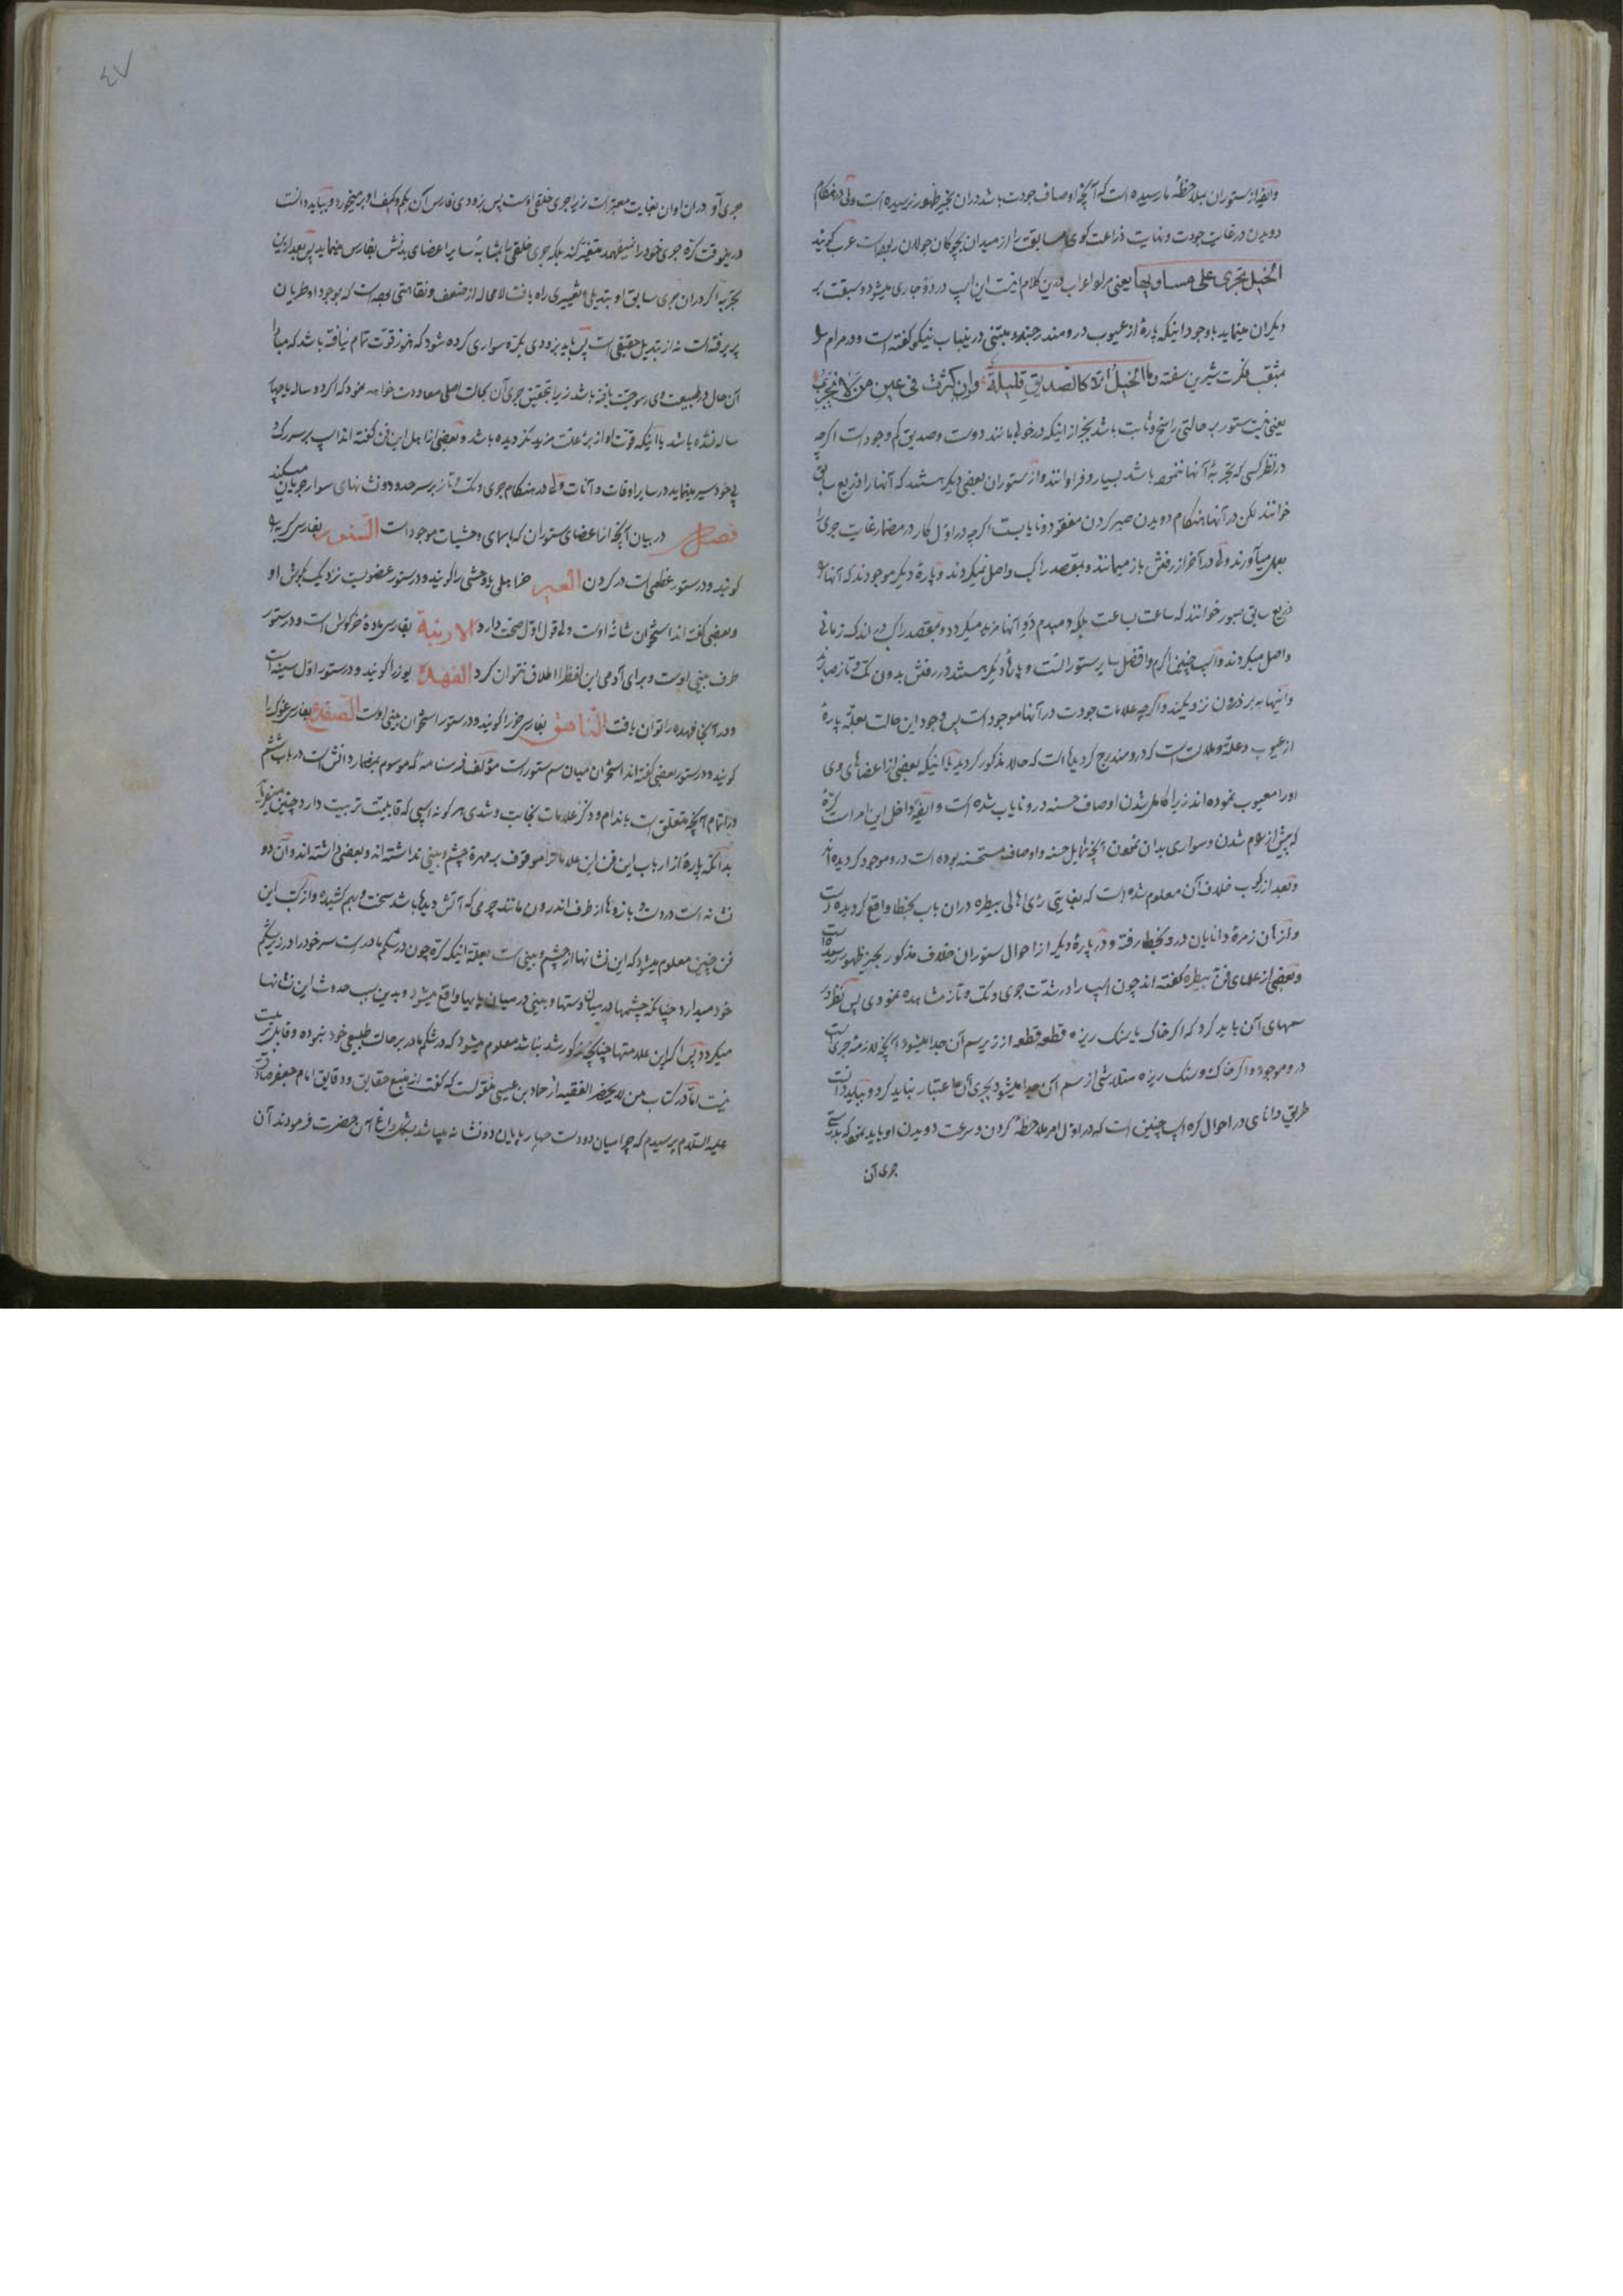 وایضا از ستوران بملاحظهٔ ما رسیده است که آنچه اوصاف جودت باشد در ان بحیز ظهور نرسیده است ولی در هنکام
دویدن در غایت جودت و نهایت ذراعت کوی مسابقت را از میدان بچوکان جولان ربوده است عرب کویند
الخیل تجری علی مساویها یعنی این اسپ در دو جاری میشود و سبقت بر
دیکران مینماید با وجود اینکه پارهٔ از عیوب در و مندرجند و متنبی درینباب نیکو کفته است و در مرام را
بمثقب فکرت شیرین سفته وما الخیل الا کالصدیق قلیلة وان کثرت فی عین من لا یجرب
یعنی نیست ستور بر حالتی راسخ و ثابت باشد بجز از اینکه درخور مانند دوست و صدیق کم وجود است اکرچه
در نظر کسی که تجربهٔ آنها ننموده باشد بسیار و فراوانند و از ستوران بعضی دیکر هستند که آنها را ذریع سابق
خوانند لکن در آنها هنکام دویدن صبر کردن مفقود و نایابست اکرچه در اول کار در مضمار غایت جری را
بعمل میآورند ولی در آخر از رفتن باز میمانند و بمقصد راکب واصل نمیکردند و پارهٔ دیکر موجودند که آنها را
ذریع سابق صبور خوانند که ساعت بساعت بلکه دمبدم دو آنها مزید میکردد و بمقصد راکب در اندک زمانی
واصل میکردند و اسپ چنین اکرم و افضل سایر ستورانست و پارهٔ دیکر هستند در رفتن بدون تک و تاز صابرند
و اینها به برذون نزدیکند و اکرچه علامات جودت در آنها موجود است پس وجود این حالت بعلة پارهٔ
از عیوب و علة و ملالت است که درو مندرج کردیده است که حالا مذکور کردید یا اینکه بعضی از اعضاهای وی
اورا معیوب نموده اند زیرا کامل شدن اوصاف حسنه در و نایاب شده است و ایضا داخل این امر است کرهٔ
که پیش از رام شدن و سواری بدان نمودن آنچه شمایل حسنه و اوصاف مستحسنه بوده است درو موجود کردیده اند
و بعد از رکوب خلاف آن معلوم شده است که بغایتی رای اهالی بیطره دران باب بخطا واقع کردیده است
و اذهان زمرهٔ دانایان درو بخطا رفته و در پارهٔ دیکر از احوال ستوران خلاف مذکور بحیز ظهور رسیده است
و بعضی از علمای فن بیطره کفته اند چون اسپ را در شدت جری و تک و تاز مشاهده نمودی پس نظر در
سمهای آن باید کرد که اکر خاک یا سنک ریزه قطعه قطعه از زیر سم آن جدا میشود آنچه لازمهٔ جری است
درو موجود و اکر خاک و سنک ریزه متلاشی از سم آن جدا میشود بجری آن اعتبار نباید کرد و بباید دانست
طریق دانای در احوال کره اسپ چنین است که در اول امر ملاحظه کردن و سرعت دویدن او باید نمود که بدرستی
جری آن
٤٧
جری آن دران اوان بغایت معتبر است زیرا جری خلقی اوست پس بزودی فارس آن بکم و کیف او بر میخورد و بباید دانست
درینوقت کره جری خود را متغیر نکند بلکه جری خلقی را بمشابهٔ سایر اعضای بدنش بفارس مینماید پس بعد ازین
تجربه اکر دران جری سابق او تبدیلی و تغییری راه یافت لامحاله از ضعف و نقاهتی بوده است که بوجود او طریان
پذیرفته است نه از تبدیل حقیقی است پس باید بزودی بکره سواری کرده شود که هنوز قوت تمام نیافته باشد که مبادا
آن حال در طبیعت وی رسوخیت یافته باشد زیرا بتحقیق جری آن بحالت اصلی معاودت خواهد نمود که اکر دو ساله یا چهار
ساله شده باشد یا اینکه قوت او از برء علت مزید نکردیده باشد و بعضی از اهل این فن کفته اند اسپ بر سر رک
پی خود سیر مینماید در سایر اوقات و آنات ولی در هنکام جری و تک و تاز بر سر حدود و نشانهای سوار جریان میکند
فصل در بیان آنچه از اعضای ستوران که باسمای وحشیات موجود است السنور بفارسی کربه را
کویند و در ستور عظمی است در کردن العیر خر اهلی یا وحشی را کویند و در ستور عضویست نزدیک بکوش او
و بعضی کفته اند استخوان شانهٔ اوست ولی قول اول صحت دارد الارنبة بفارسی مادهٔ خرکوش است و در ستور
طرف بینی اوست و برای آدمی این لفظ را اطلاق نتوان کرد الفهد یوز را کویند و در ستور اول سینه است
و در آنجا فهده را توان یافت الناهق بفارسی خر را کویند و در ستور استخوان بینی اوست الضفدع بفارسی غوک را
کویند و در ستور بعضی کفته اند استخوان میان سم ستور است مؤلف فرسنامه که موسوم بمضمار دانش است در باب ششم
در اتمام آنچه متعلق است باندام و ذکر علامات نجابت و شدی هر کونه اسپی که قابلیت تربیت دارد چنین میفرماید
بدانکه پارهٔ از ارباب این فن این علامات را موقوف بر مهرهٔ چشم و بینی نداشته اند و بعضی داشته اند و آن دو
نشانه است در دست و بازوها از طرف اندرون مانند چرمی که آتش دیده باشد سخت و بهم کشیده و از کتب این
فن چنین معلوم میشود که این نشانها از چشم و بینی است بعلة اینکه کره چون در شکم مادر است سر خود را در زیر شکم
خود میدارد چنانکه چشمها در میان دستها و بینی در میان پایها واقع میشود و بدین سبب حدوث این نشانها
میکردد پس اکر این علامتها چنانچه مذکور شد نباشد معلوم میشود که در شکم مادر بر حالت طبیعی خود نبوده و قابل تربیت
نیست اما در کتاب من لا یحضر الفقیه از حماد بن عیسی منقولست که کفت از منبع حقایق و دقایق امام جعفر صادق
علیه السلام پرسیدم که چرا میان دو دست چهارپایان دو نشانه میباشد بشکل داغ آن حضرت فرمودند آن